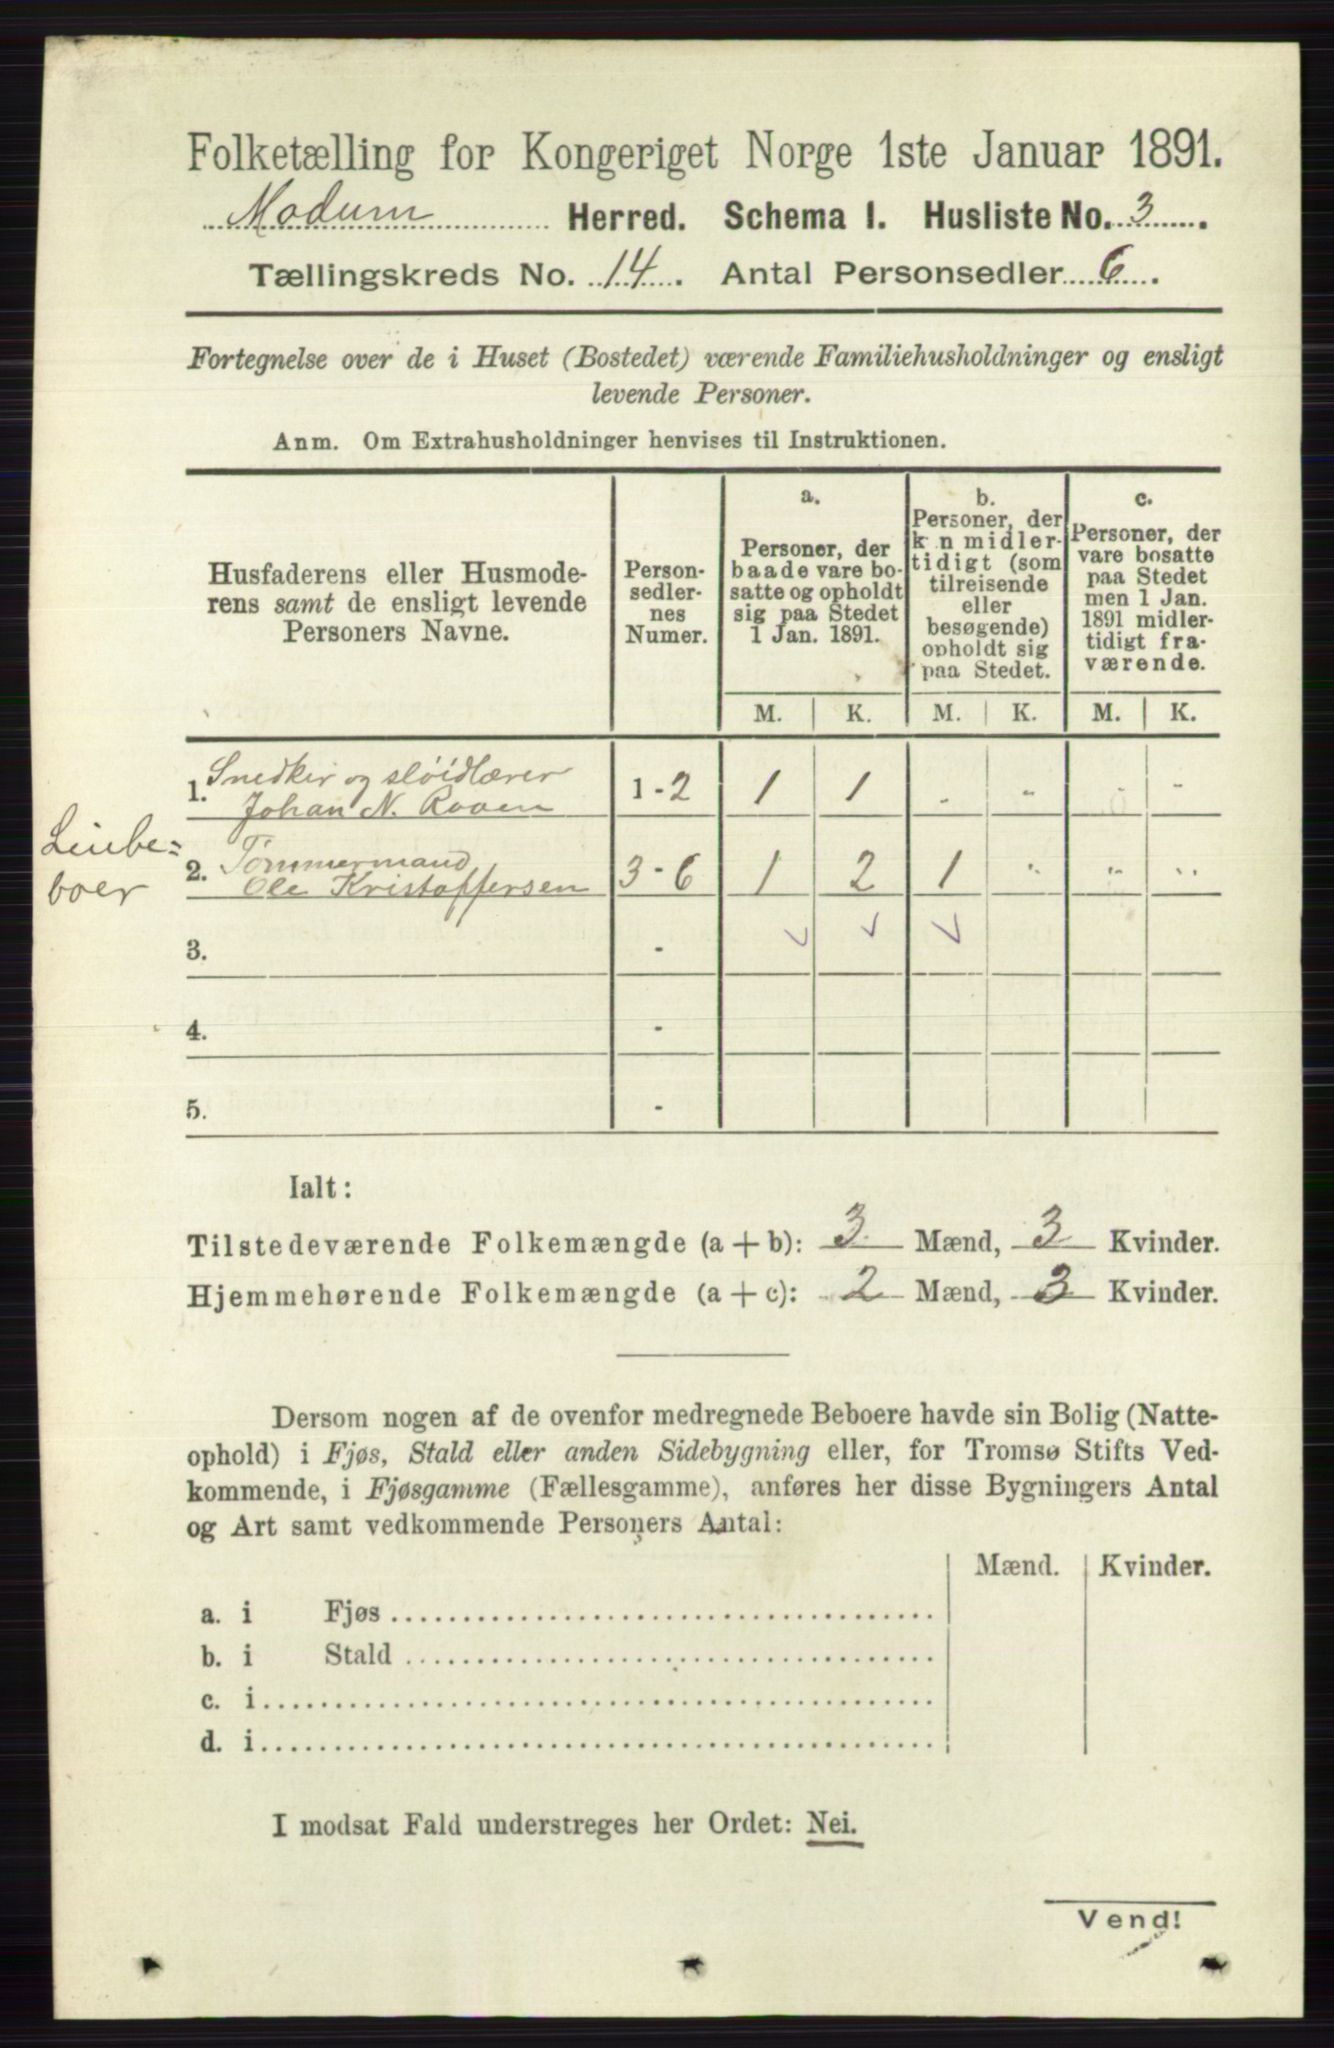 Folketælling for Kongeriget Norge 1ste Januar 1891.
Modum Herred. Schema I. Husliste No. 3.
Tællingskreds No. 14. Antal Personsedler 6.
Fortegnelse over de i Huset (Bostedet) værende Familiehusholdninger og ensligt
levende Personer.
Anm. Om Extrahusholdninger henvises til Instruktionen.
Husfaderens eller Husmode-
rens samt de ensligt levende
Personers Navne.
Person-
sedler-
nes
Numer.
a.
Personer, der
baade vare bo-
satte og opholdt
sig paa Stedet
1 Jan. 1891.
b.
Personer, der
k n midler-
tidigt (som
tilreisende
eller
besøgende)
opholdt sig
paa Stedet.
c.
Personer, der
vare bosatte
paa Stedet
men 1 Jan.
1891 midler-
tidigt fra-
værende.
M. K. M. K. M. K.
Snedker og sløidlærer
1. Johan N. Raaen 1-2 1 1 - - - -
Leiebe-
boer
Tømmermand
2. Ole Kristoffersen 3-6 1 2 1 - - -
3. -
4. -
5. -
Ialt:
Tilstedeværende Folkemængde (a + b): 3 Mænd, 3 Kvinder.
Hjemmehørende Folkemængde (a + c): 2 Mænd, 3 Kvinder.
Dersom nogen af de ovenfor medregnede Beboere havde sin Bolig (Natte-
ophold) i Fjøs, Stald eller anden Sidebygning eller, for Tromsø Stifts Ved-
kommende, i Fjøsgamme (Fællesgamme), anføres her disse Bygningers Antal
og Art samt vedkommende Personers Antal:
Mænd. Kvinder.
a. i Fjøs
b. i Stald
c. i
d. i
I modsat Fald understreges her Ordet: Nei.
Vend!